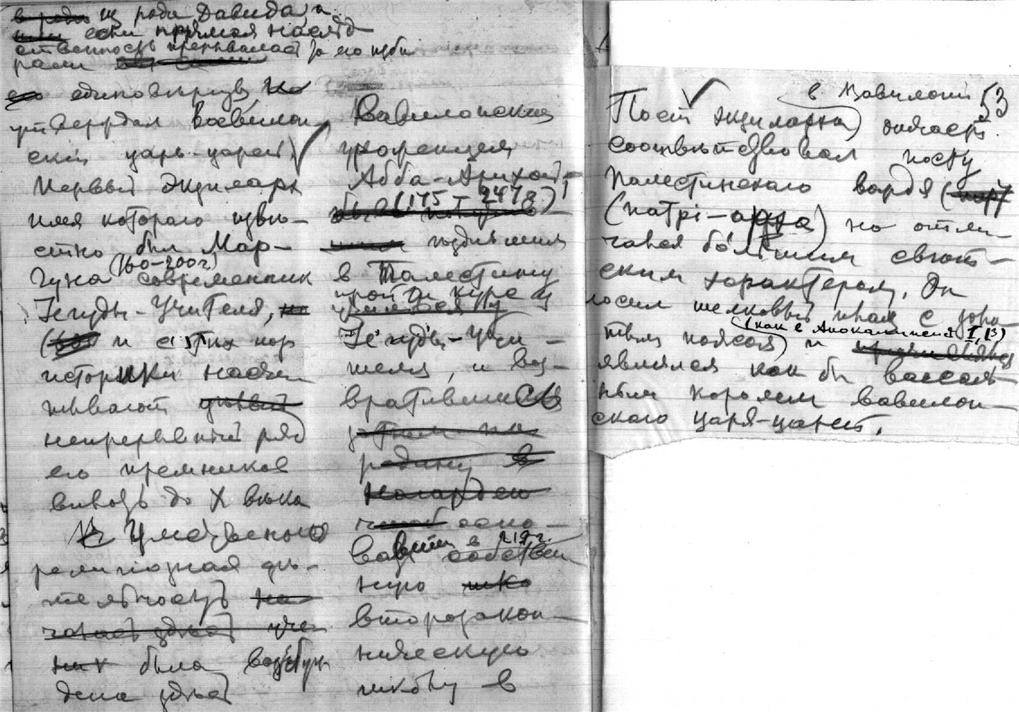 из рода Давида, а
если прямая наслѣд
ственность прерывалась за его
единовѣрцу
утверждал
скій царь-царей)
Первый эксиларх
имя котораго извѣ-
стно был Мар-
Гуна (160-200 г)
современник
Іегуды-Учителя,
(и с этих пор
историки насчи
тывают
непрерывный ряд
его преемников
вплоть до X вѣка
Умственно
религіозная дѣ-
ятельность
была возбуж
дена здѣсь
Вавилонскій
уроженец
Абба-Ариха
(175 – 247 г)
в Палестину
пройти курс у
Іегуды-Учи-
теля, и воз-
вратившись
осно-
вавшій в 219 г.
собствен
ную
второзакон-
ническую
школу в
53
Пост эксиларха) в Вавилоніи
соотвѣтствовал посту
Палестинскаго вождя
(патрі-арха) но отли-
чался большим свѣт-
ским характером. Он
носил шелковый плащ с золо
тым поясом) (как в Апокалипсисѣ I, 13) и
являлся как бы вассаль
ным королем вавилон-
скаго царя-царей.